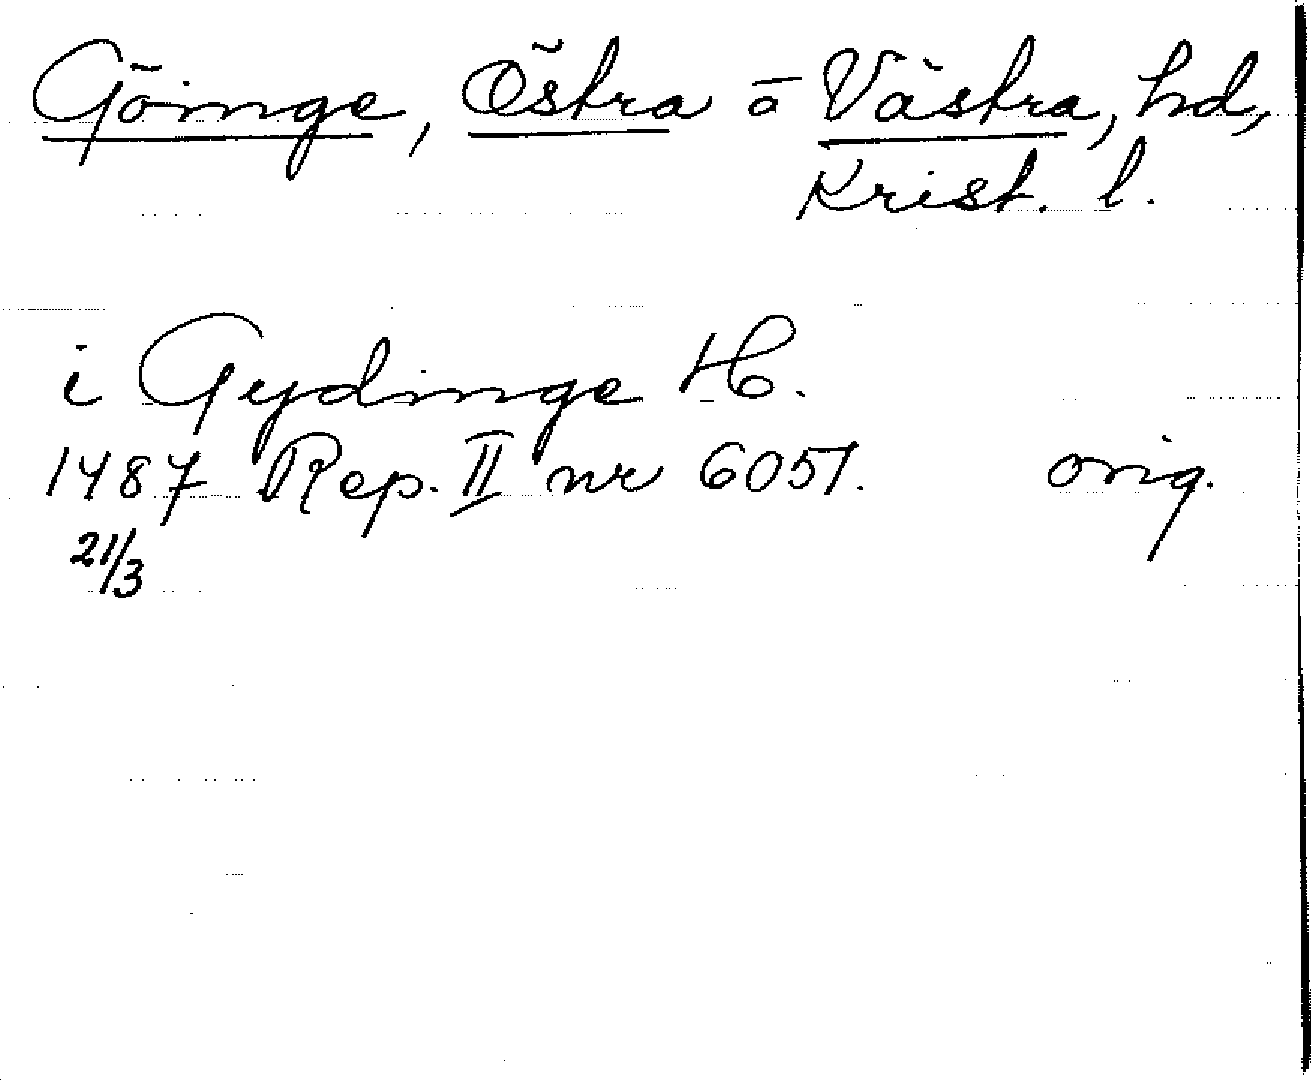 Göinge, Östra o Västra, hd,
Krist. l.
i Gydinge H.
1487 Rep. II nr 6051. orig.
21/3